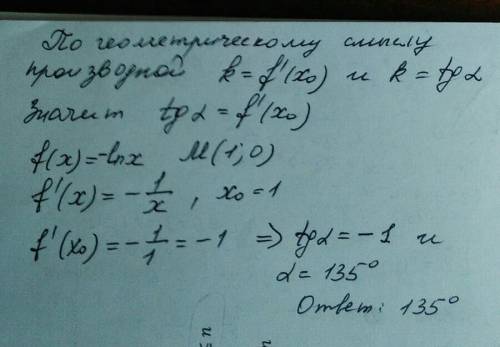 По геометрическому смыслу
производной k = f'(x₀) и k = tgα
Значит tgα = f'(x₀)
f(x) = -lnx M(1; 0)
f'(x) = - 1/x , x₀ = 1
f'(x₀) = - 1/1 = -1 => tgα = -1 и
α = 135°
Ответ: 135°
= n
n